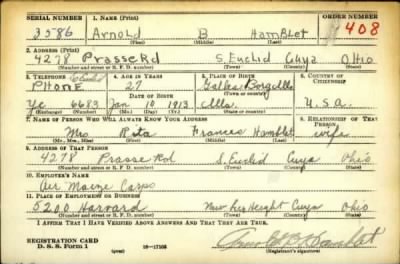 SERIAL NUMBER 1. NAME (Print) ORDER NUMBER
3586 Arnold B Hamblet 1408
(First) (Middle) (Last)
2. ADDRESS (Print)
4278 Prasse Rd S. Euclid Cuya Ohio
(Number and street or R. F. D. number) (Town) (County) (State)
3. TELEPHONE 4. AGE IN YEARS 5. PLACE OF BIRTH 6. COUNTRY OF CITIZENSHIP
PHONE 27
DATE OF BIRTH (Town or county)
Ye 6683 Jan 10 1913 U.S.A.
(Exchange) (Number) (Mo.) (Day) (Yr.) (State or country)
7. NAME OF PERSON WHO WILL ALWAYS KNOW YOUR ADDRESS 8. RELATIONSHIP OF THAT PERSON
Mrs Rita Frances Hamblet wife
(Mr., Mrs., Miss) (First) (Middle) (Last)
9. ADDRESS OF THAT PERSON
4278 Prasse Rd S. Euclid Cuya Ohio
(Number and street or R. F. D. number) (Town) (County) (State)
10. EMPLOYER'S NAME
Air Maze Corp
11. PLACE OF EMPLOYMENT OR BUSINESS
5200 Harvard Height Cuya Ohio
(Number and street or R. F. D. number) (Town) (County) (State)
I AFFIRM THAT I HAVE VERIFIED ABOVE ANSWERS AND THAT THEY ARE TRUE.
REGISTRATION CARD
D. S. S. Form 1 (over) 16—17105 Arnold B Hamblet
(Registrant's signature)